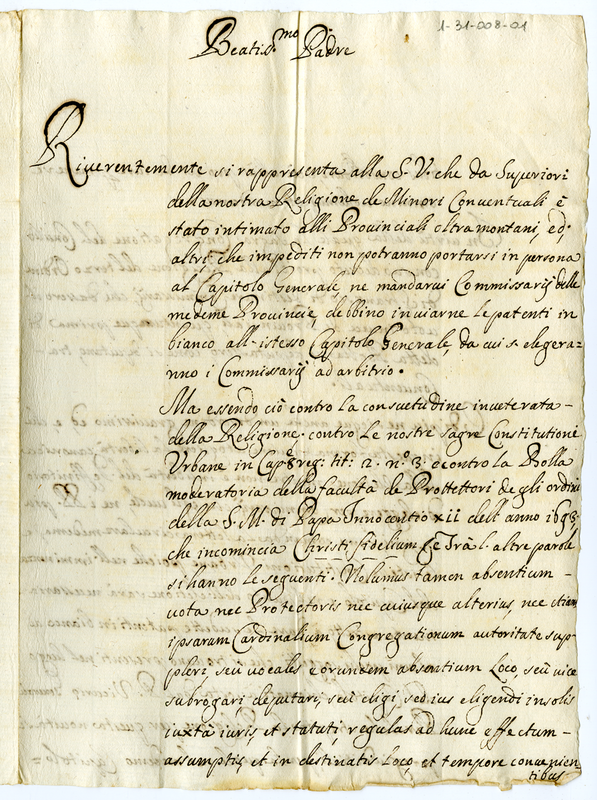 1-31-008-01
Beatis.mo Padre
Riverentemente si rappresenta alla S. V. che da Superiori
della nostra Religione de Minori Conventuali è
stato intimato alli Provinciali oltramontani, ed
altri, che impediti non potranno portarsi in persona
al Capitolo Generale, ne mandarui Commissarij delle
medeme Provincie, debbino inviarne le patenti in
bianco all'istesso Capitolo Generale, da cui s'elegera=
nno i Commissarij ad arbitrio.
Ma essendo ciò contro la consuetudine inveterata
della Religione. contro le nostre sagre Constitutioni
Urbane in tit: 2. n.o 3. e contro la Bolla
moderatoria della facultà de Prottettori de gli ordini
della S. M. di Papa Innocentio xii dell'anno
che incomincia Christi fidelium, e Trà l'altre parole
si hanno le seguenti. Nolumus tamen absentium
vota nec Protectoris nec cuiusque alterius, nec etiam
ipsarum Cardinalium Congregationum autoritate sup=
pleri, seù vocales eorundem absentium loco, seù vice
subrogari, deputari, seù eligi, sed ius eligendi in solis
iuxtà iuris, et statuti, regulas ad hunc effectum
assumptis, et in destinatis loco, et tempore convenien=
tibus